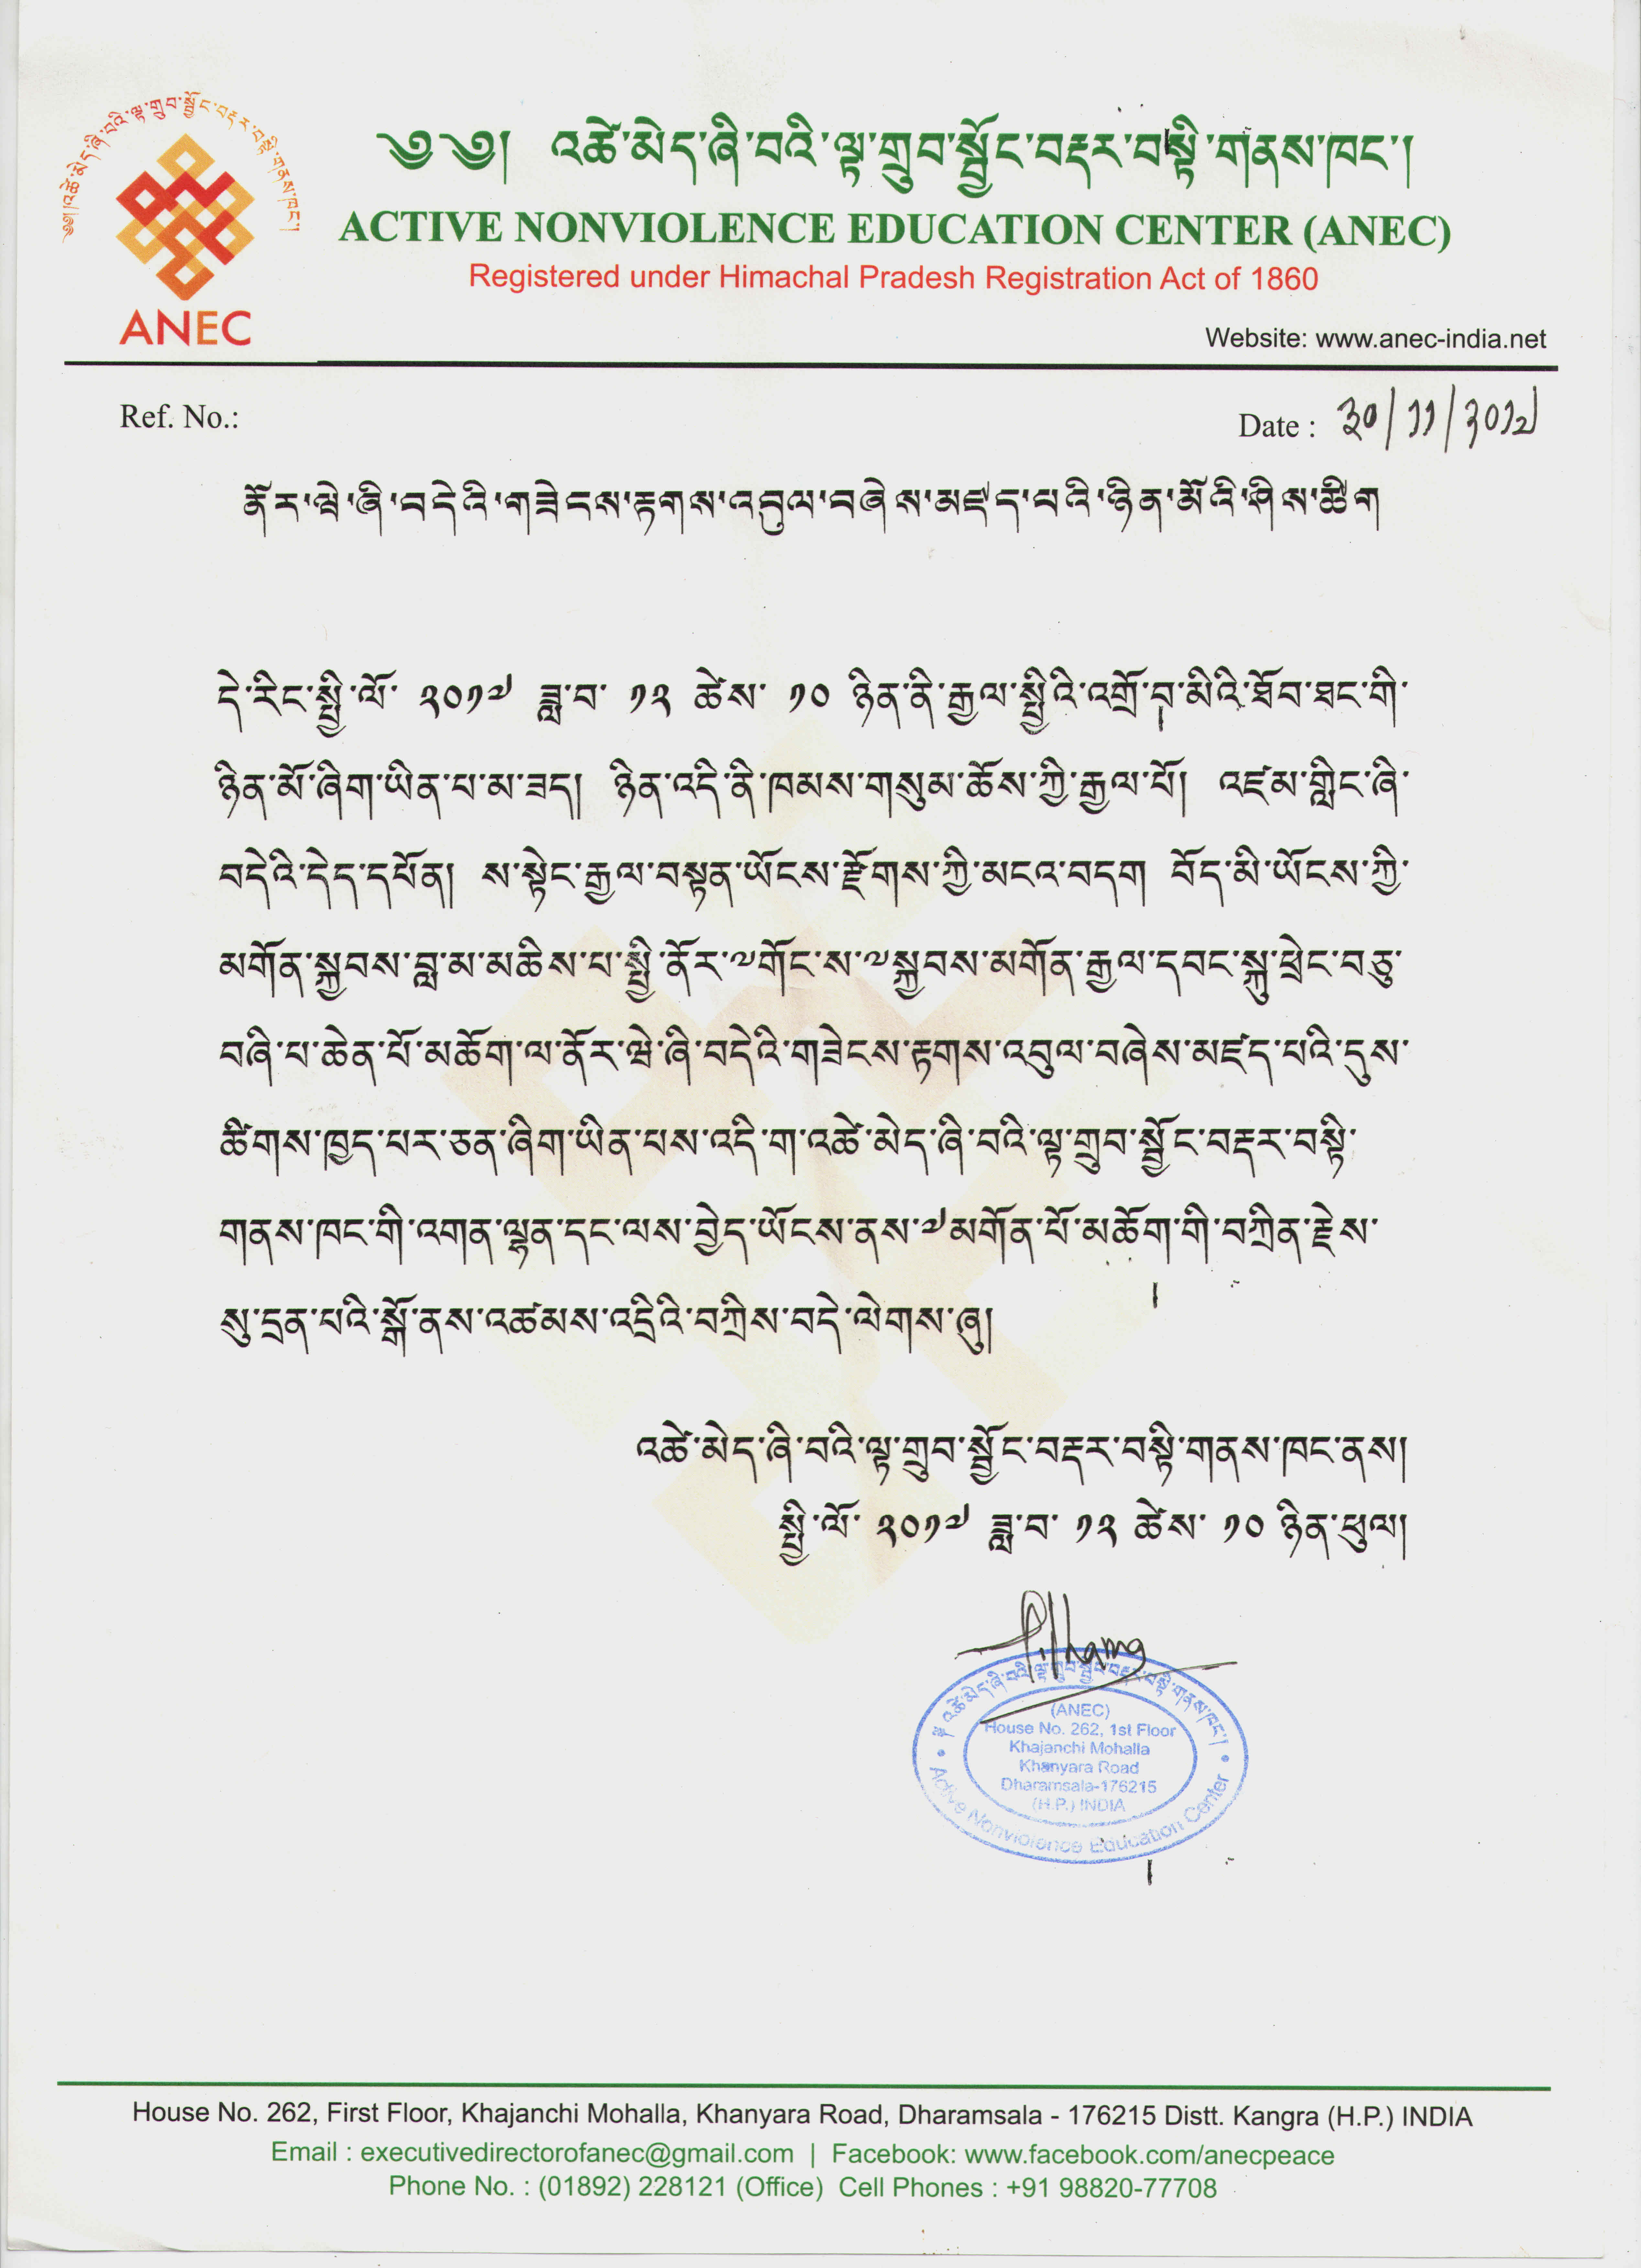 ༄༅། །འཚེ་མེད་ཞི་བའི་ལྟ་གྲུབ་སྦྱོང་བརྡར་བསྟི་གནས་ཁང་།
༄༄། འཚེ་མེད་ཞི་བའི་ལྟ་གྲུབ་སྦྱོང་བརྡར་བསྟི་གནས་ཁང་།
ANEC
ACTIVE NONVIOLENCE EDUCATION CENTER (ANEC)
Registered under Himachal Pradesh Registration Act of 1860
Website: www.anec-india.net
Ref. No.:
Date : ༣༠/༡༡/༢༠༡༧
ནོར་ལྦེ་ཞི་བདེའི་གཟེངས་རྟགས་འབུལ་བཞེས་མཛད་པའི་ཉིན་མོའི་ཤིས་ཚིག
དེ་རིང་སྤྱི་ལོ་ ༢༠༡༧ ཟླ་བ་ ༡༢ ཚེས་ ༡༠ ཉིན་ནི་རྒྱལ་སྤྱིའི་འགྲོ་བ་མིའི་ཐོབ་ཐང་གི་
ཉིན་མོ་ཞིག་ཡིན་པ་མ་ཟད། ཉིན་འདི་ནི་ཁམས་གསུམ་ཆོས་ཀྱི་རྒྱལ་པོ། འཛམ་གླིང་ཞི་
བདེའི་དེད་དཔོན། ས་སྟེང་རྒྱལ་བསྟན་ཡོངས་རྫོགས་ཀྱི་མངའ་བདག བོད་མི་ཡོངས་ཀྱི་
མགོན་སྐྱབས་བླ་མ་མཆིས་པ་སྤྱི་ནོར་༧གོང་ས་༧སྐྱབས་མགོན་རྒྱལ་དབང་སྐུ་ཕྲེང་བཅུ་
བཞི་པ་ཆེན་པོ་མཆོག་ལ་ནོར་ལྦེ་ཞི་བདེའི་གཟེངས་རྟགས་འབུལ་བཞེས་མཛད་པའི་དུས་
ཚིགས་ཁྱད་པར་ཅན་ཞིག་ཡིན་པས་འདི་ག་འཚེ་མེད་ཞི་བའི་ལྟ་གྲུབ་སྦྱོང་བརྡར་བསྟི་
གནས་ཁང་གི་འགན་ལྡན་དང་ལས་བྱེད་ཡོངས་ནས་༧མགོན་པོ་མཆོག་གི་བཀྲིན་རྗེས་
སུ་དྲན་པའི་སྒོ་ནས་འཚམས་འདྲིའི་བཀྲིས་བདེ་ལེགས་ཞུ།
འཚེ་མེད་ཞི་བའི་ལྟ་གྲུབ་སྦྱོང་བརྡར་བསྟི་གནས་ཁང་ནས།
སྤྱི་ལོ་ ༢༠༡༧ ཟླ་བ་ ༡༢ ཚེས་ ༡༠ ཉིན་ཕུལ།
འཚེ་མེད་ཞི་བའི་ལྟ་གྲུབ་སྦྱོང་བརྡར་བསྟི་གནས་ཁང་།
(ANEC)
House No. 262, 1st Floor
Khajanchi Mohalla
Khanyara Road
Dharamsala-176215
(H.P.) INDIA
Active Nonviolence Education Center
House No. 262, First Floor, Khajanchi Mohalla, Khanyara Road, Dharamsala - 176215 Distt. Kangra (H.P.) INDIA
Email : executivedirectorofanec@gmail.com | Facebook: www.facebook.com/anecpeace
Phone No. : (01892) 228121 (Office) Cell Phones : +91 98820-77708